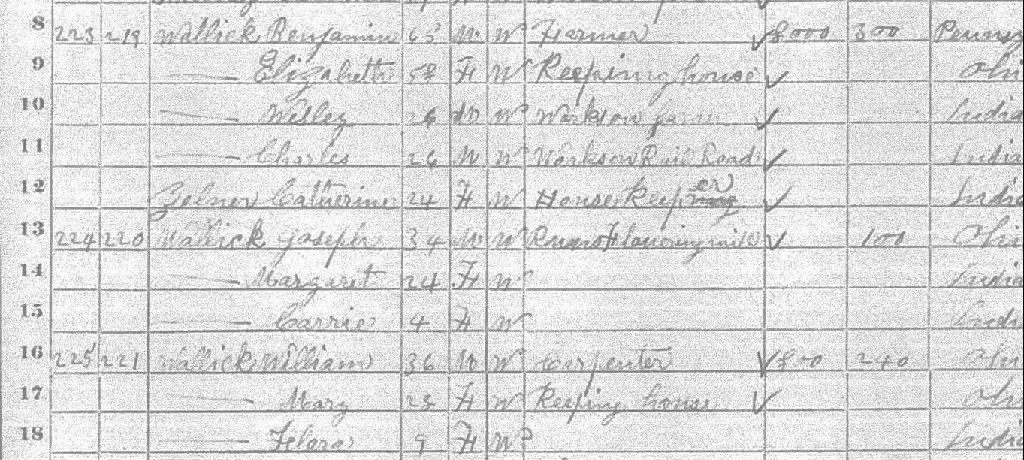 8 223 219 Wallick Benjamin 65 M W Farmer ✓ 8000 300 Pennsy
9 — Elizabeth 58 F W Keeping house ✓ Ohi
10 — Willey M W Works on farm ✓ India
11 — Charles 26 M W Works on Rail Road ✓ India
12 Zelner Catherine 24 F W House Keeper ✓ India
13 224 220 Wallick Joseph 34 M W Runs Flouring mill ✓ 100 Ohi
14 — Margaret 24 F W India
15 — Carrie 4 F W Indi
16 225 221 Wallick William 36 M W Carpenter ✓ 800 240 Ohi
17 — Mary F W Keeping house ✓ Ohi
18 — Flora F W India